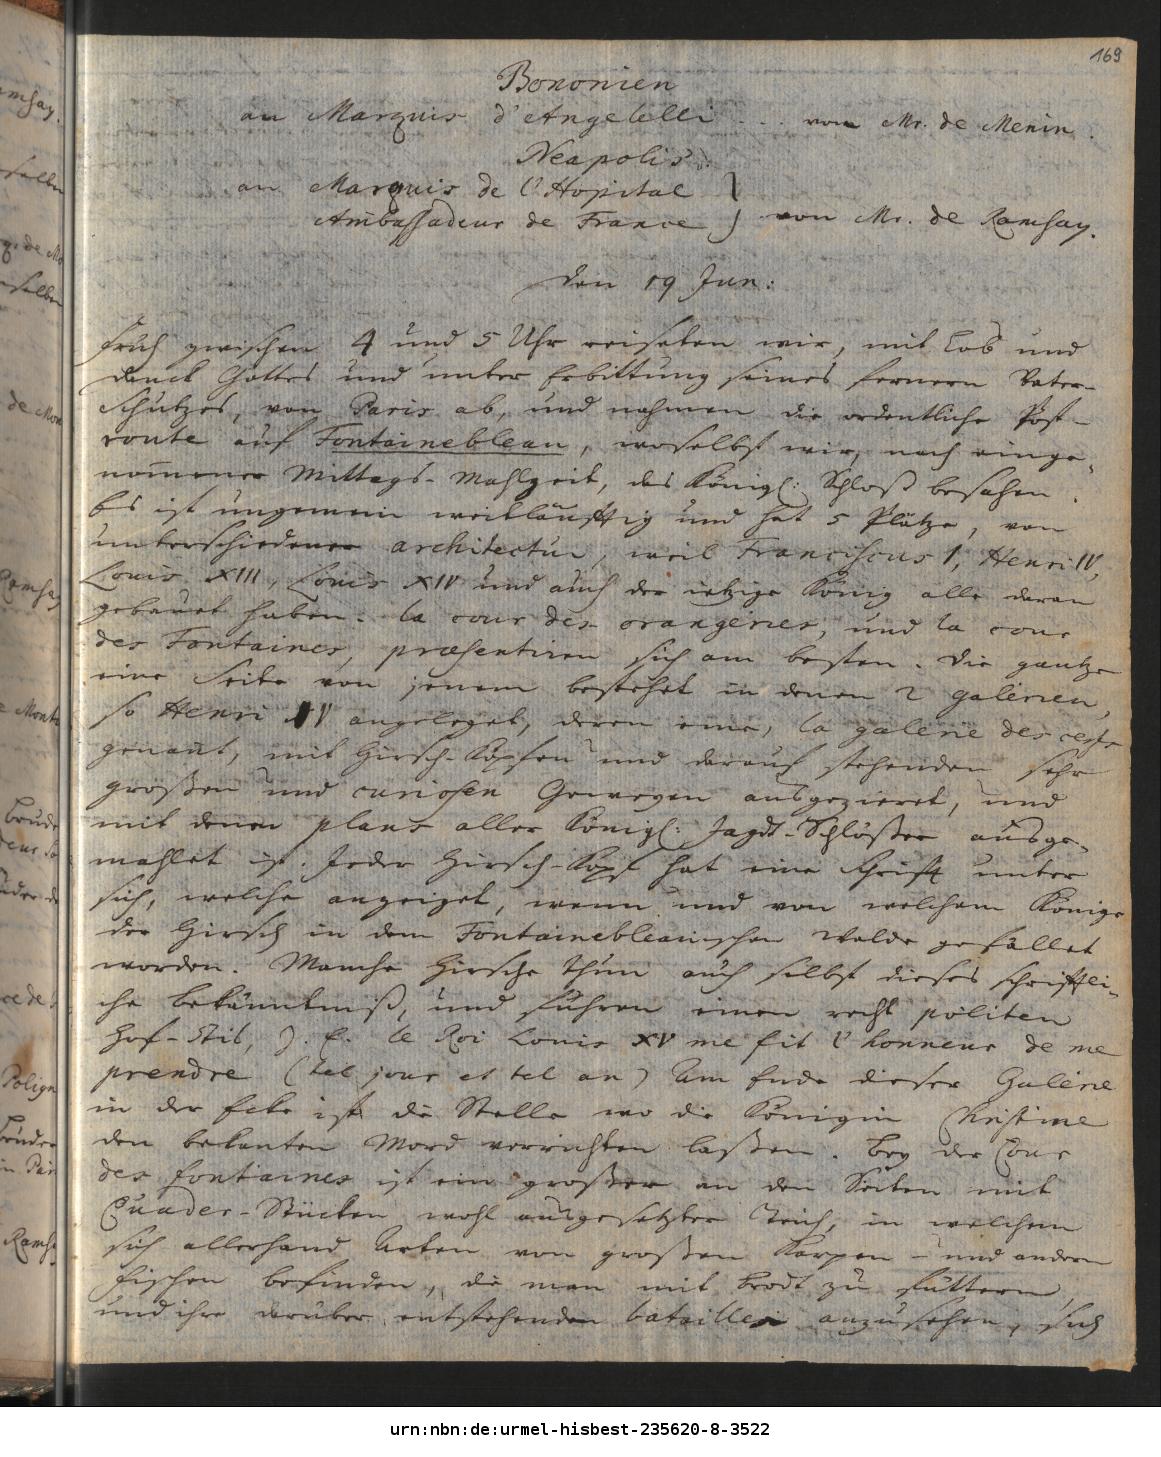 169
Bononien
an Marquis d'Angelelli ... von Mr. de Menin.
Neapolis.
an Marquis de l'Hopital }
Ambassadeur de France } von Mr. de Ramsay.
den 19 Jun:
Früh zwischen 4 und 5 Uhr reiseten wir, mit Lob und
Danck Gottes und unter Erbittung seines fernern Vater-
Schutzes, von Paris ab, und nahmen die ordentliche Post-
route auf Fontainebleau, woselbst wir, nach einge-
nom̄ener Mittags-Mahlzeit, das Königl: Schloß besahen.
Es ist ungemein weitläufftig und hat 5 Plätze, von
unterschiedener architectur, weil Franciscus I, Henri IV,
Louis XIII, Louis XIV und auch der ietzige König alle daran
gebauet haben. la cour des orangeries, und la cour
des Fontaines, præsentiren sich am besten. Die gantze
eine Seite von jenem bestehet in denen 2 galerien,
so Henri IV angeleget, deren eine, la galerie des cerfs
genant, mit Hirsch-Köpfen und darauf stehenden sehr
großen und curiosen Geweyen ausgezieret, und
mit denen plans aller Königl: Jagdt-Schlößer ausge-
mahlet ist. Jeder Hirsch-Kopf hat eine Schrift unter
sich, welche anzeiget, wenn und von welchem Könige
der Hirsch in dem Fontainebleauischen Walde gefället
worden. Manche Hirsche thun auch selbst dieses schrifftli-
che Bekänntniß, und führen einen recht politen
Hof-Stil, z. E. le Roi Louis XV me fit l'honneur de me
prendre (tel jour et tel an) Am Ende dieser Galerie
in der Ecke ist die Stelle wo die Königin Christine
den bekanten Mord verrichten laßen. Bey der Cour
des fontaines ist ein großer an den Seiten mit
Quader-Stücken wohl ausgesetzter Teich, in welchem
sich allerhand Arten von großen Karpen- und andern
Fischen befinden, die man mit Brodt zu füttern,
und ihre darüber entstehenden bataillen anzusehen, sich
urn:nbn:de:urmel-hisbest-235620-8-3522